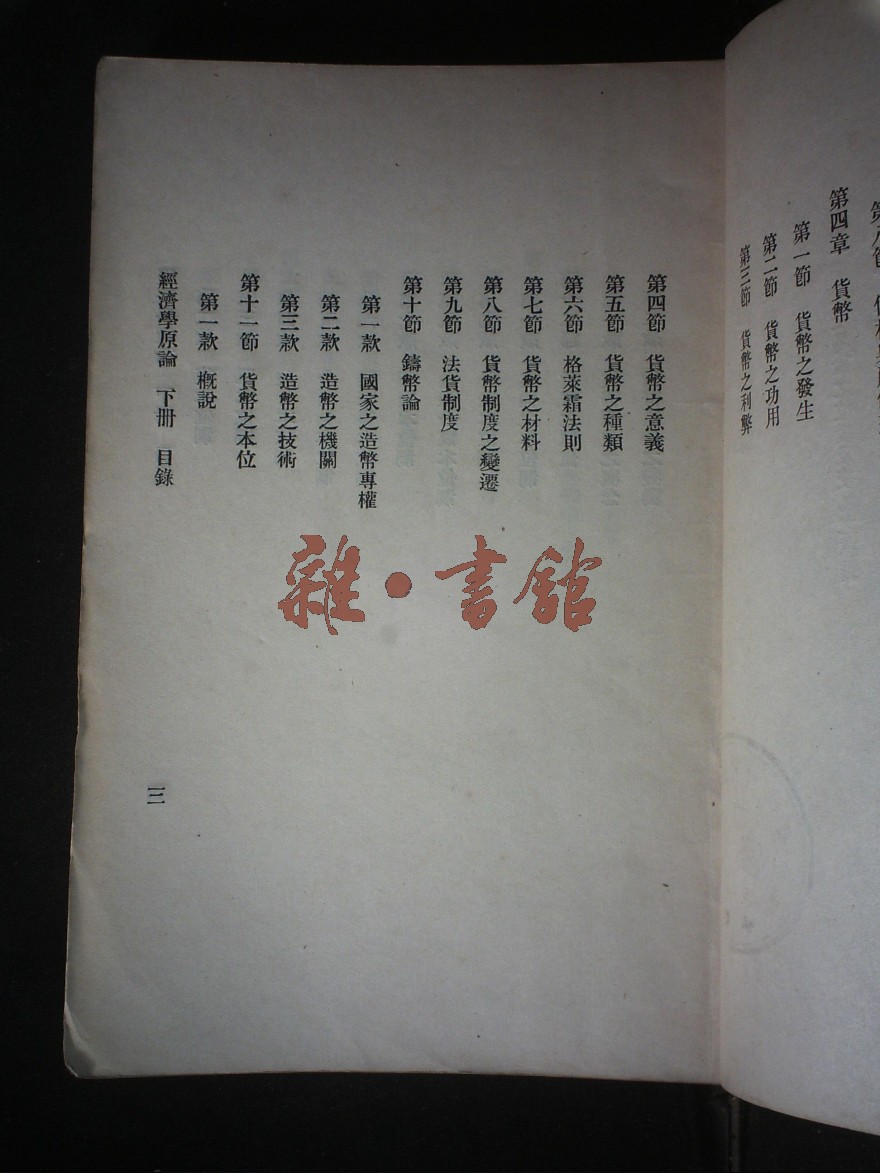 第四章 貨幣
第一節 貨幣之發生
第二節 貨幣之功用
第三節 貨幣之利弊
第四節 貨幣之意義
第五節 貨幣之種類
第六節 格萊霜法則
第七節 貨幣之材料
第八節 貨幣制度之變遷
第九節 法貨制度
第十節 鑄幣論
第一款 國家之造幣專權
第二款 造幣之機關
第三款 造幣之技術
第十一節 貨幣之本位
第一款 槪說
經濟學原論 下冊 目錄
三
雜·書館